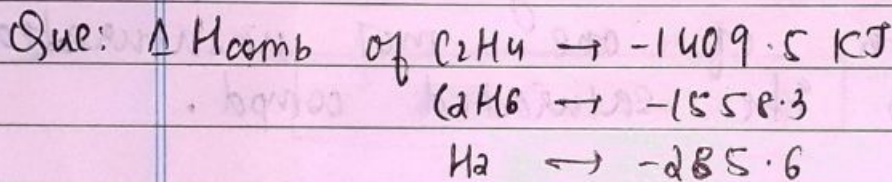 Que: Δ Hcomb of C2H4 → -1409.5 KJ
C2H6 → -1558.3
H2 → -285.6